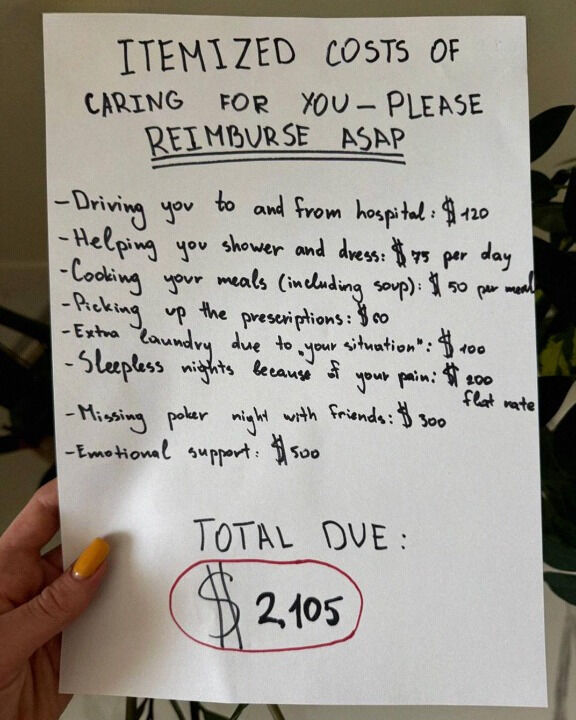 ITEMIZED COSTS OF
CARING FOR YOU – PLEASE
REIMBURSE ASAP
- Driving you to and from hospital: $120
- Helping you shower and dress: $75 per day
- Cooking your meals (including soup): $50 per meal
- Picking up the prescriptions: $60
- Extra laundry due to „your situation": $100
- Sleepless nights because of your pain: $200
flat rate
- Missing poker night with friends: $300
- Emotional support: $500
TOTAL DUE:
$2,105